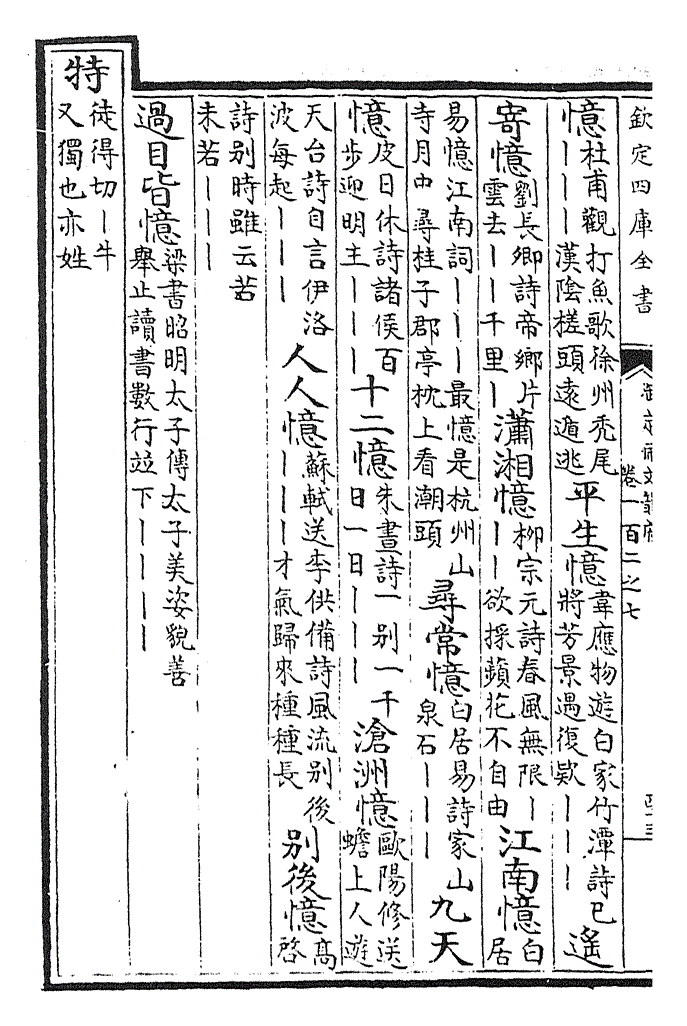 欽定四庫全書
卷一百二之七
憶杜甫觀打魚歌徐州禿尾丨丨丨漢陰槎頭遠遁逃平生憶韋應物遊白家竹潭詩已將芳景遇復歎丨丨丨遙
寄憶劉長卿詩帝鄉片雲去丨丨千里丨瀟湘憶柳宗元詩春風無限丨丨丨欲採蘋花不自由江南憶白居
易憶江南詞丨丨丨最憶是杭州山寺月中尋桂子郡亭枕上看潮頭尋常憶白居易詩家山泉石丨丨丨九天
憶皮日休詩諸侯百步迎明主丨丨丨十二憶朱晝詩一别一千日一日丨丨丨滄洲憶歐陽修送蟾上人遊
天台詩自言伊洛波每起丨丨丨人人憶蘇軾送李供備詩風流别後丨丨丨才氣歸來種種長别後憶高啓
詩别時雖云苦未若丨丨丨
過目皆憶梁書昭明太子傳太子美姿貌善舉止讀書數行竝下丨丨丨丨
特徒得切丨牛又獨也亦姓